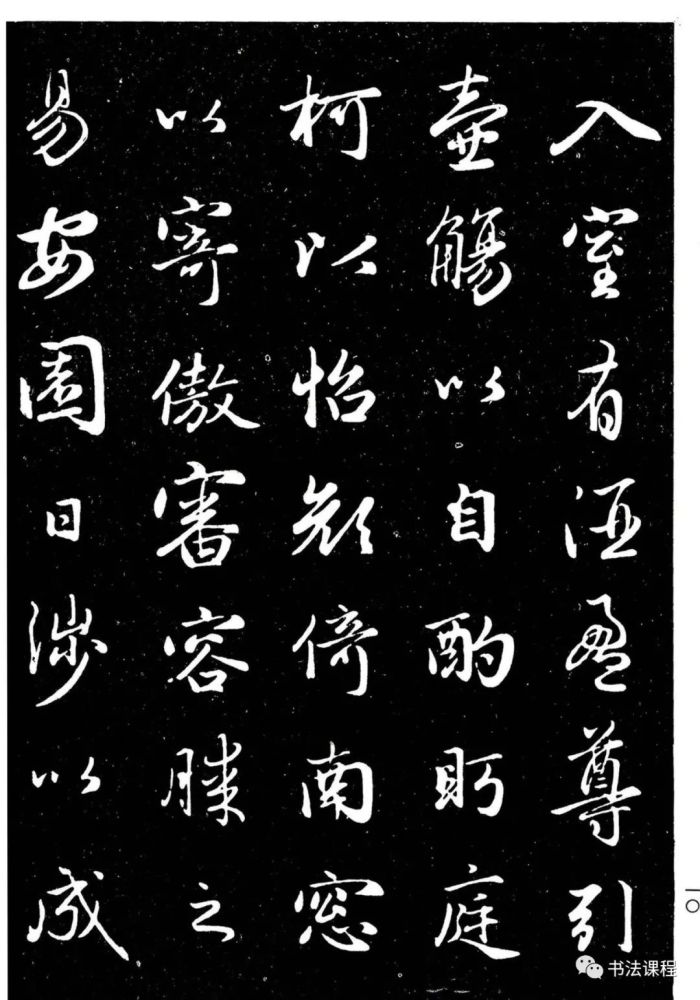 入室有酒盈尊引
壺觴以自酌眄庭
柯以怡顔倚南窓
以寄傲審容膝之
易安園日涉以成
一〇
书法课程